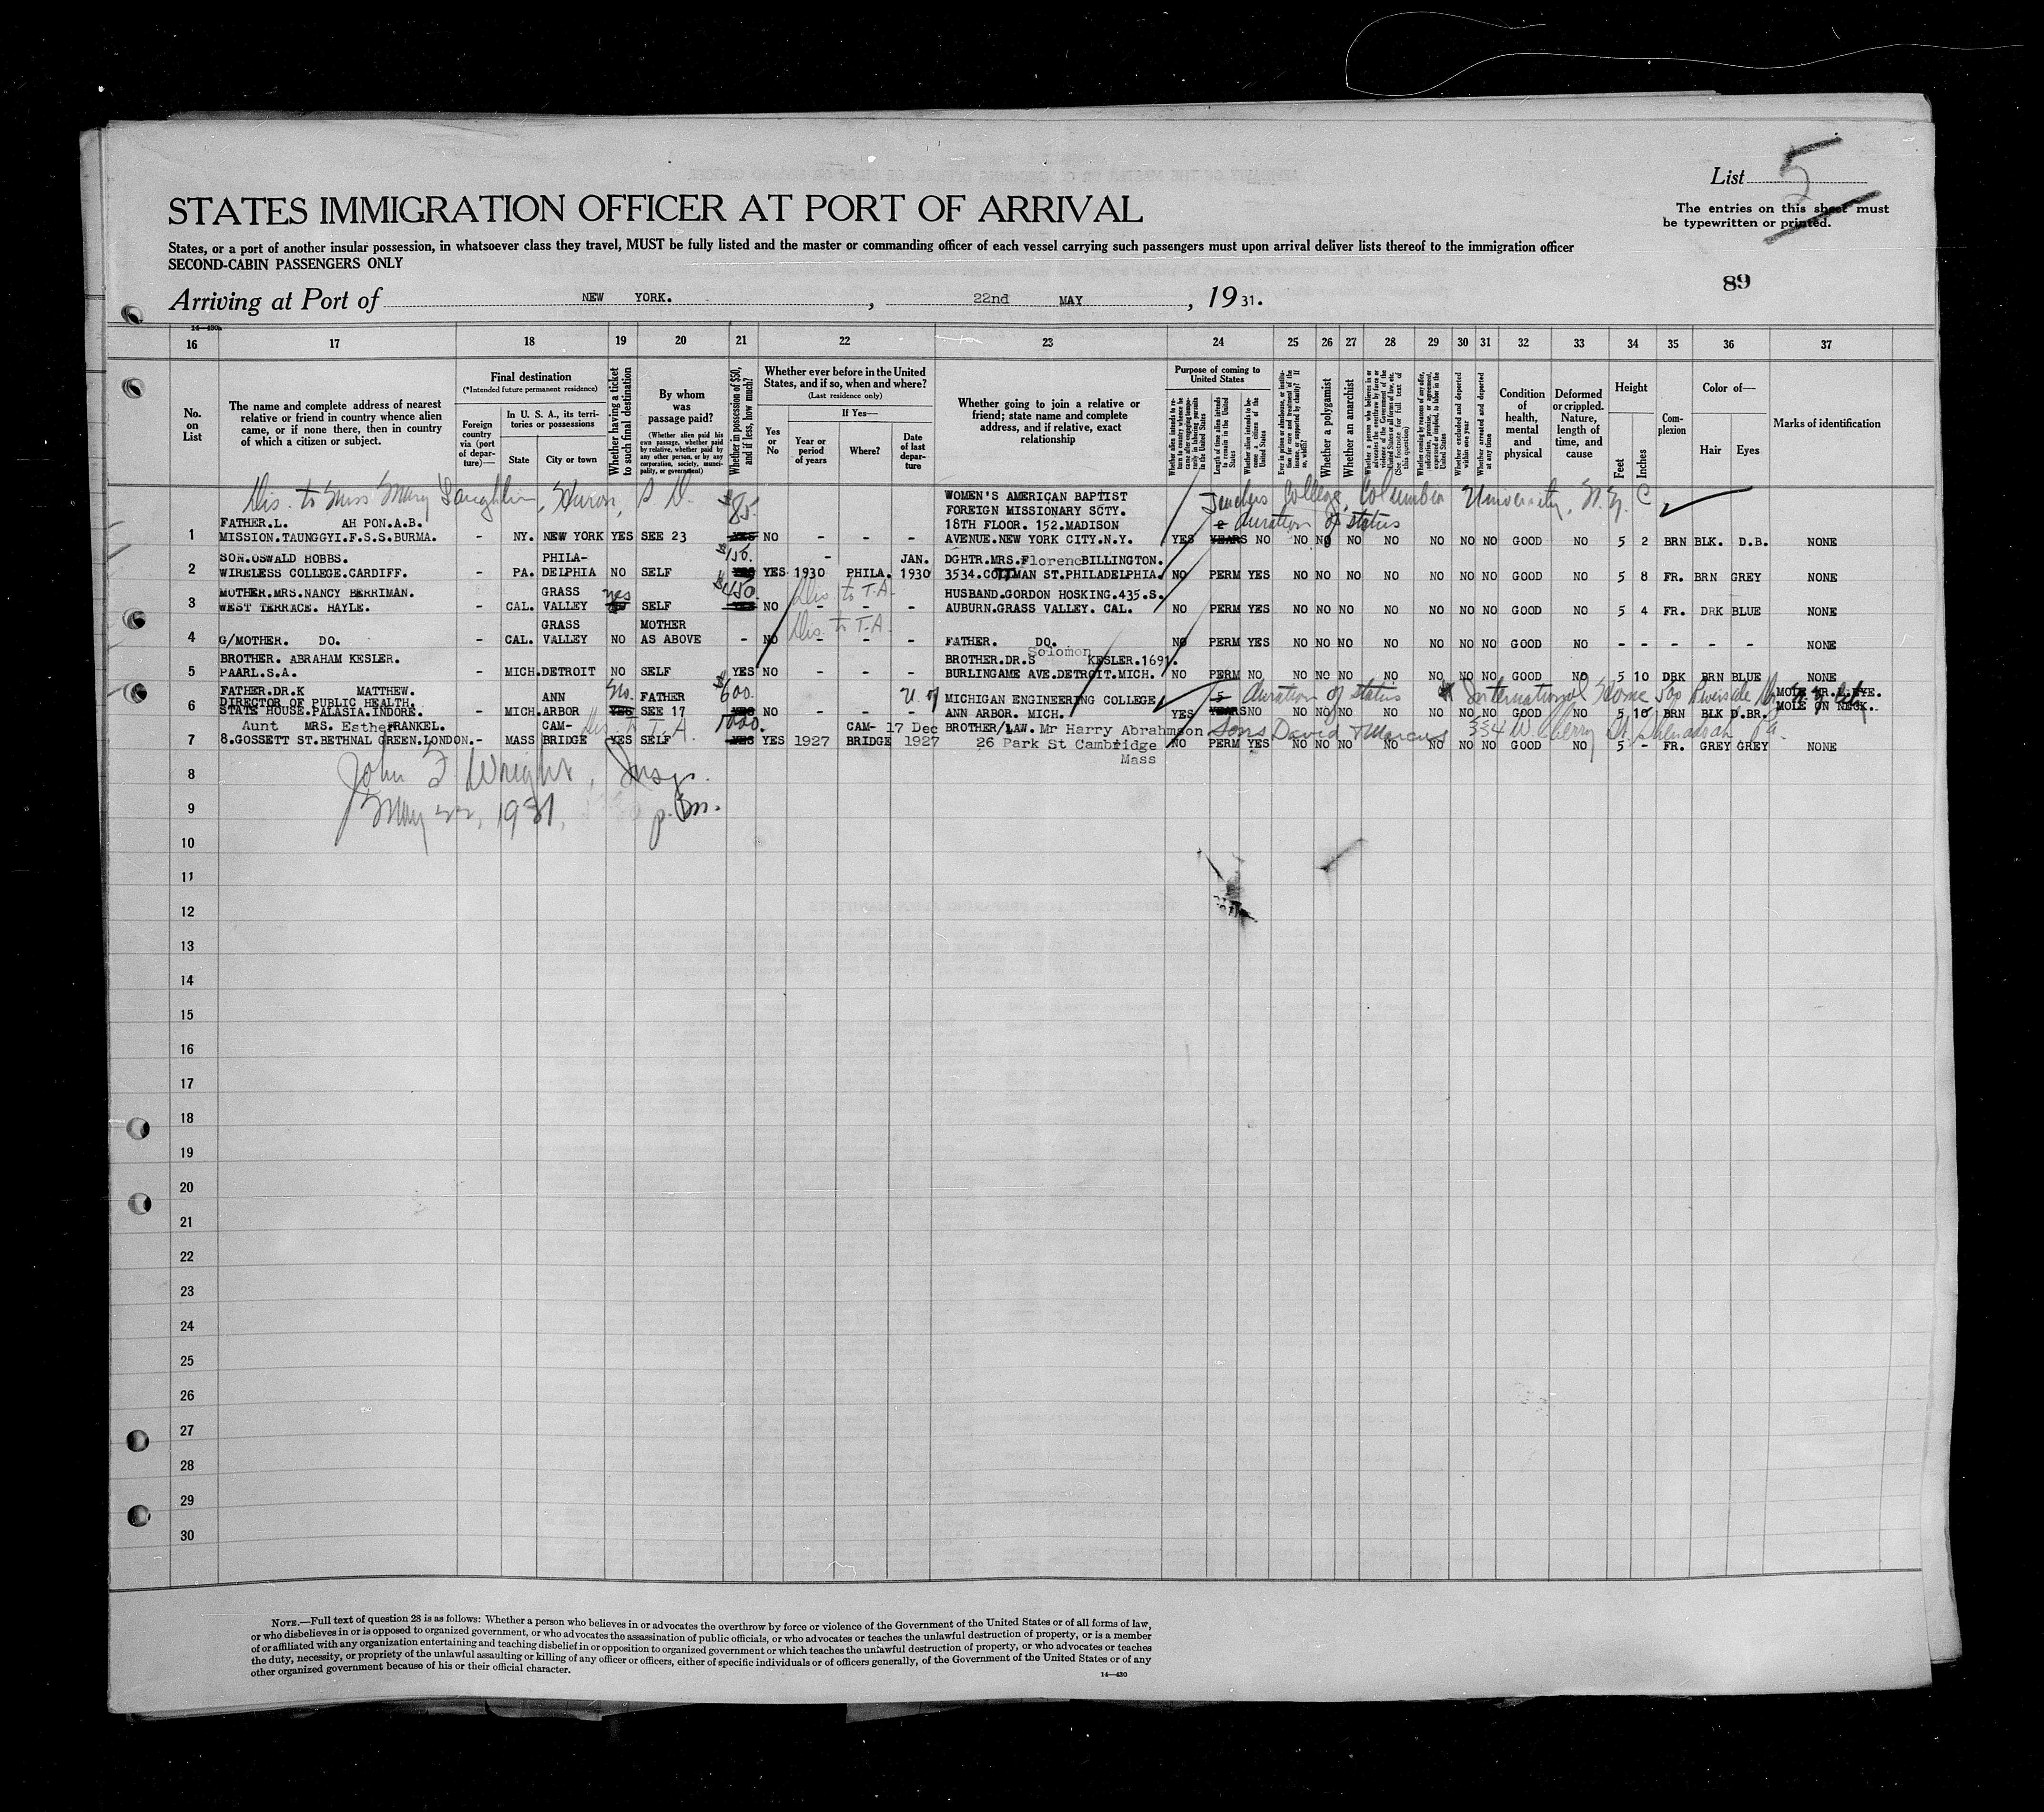 List 5
STATES IMMIGRATION OFFICER AT PORT OF ARRIVAL
The entries on this sheet must
be typewritten or printed.
States, or a port of another insular possession, in whatsoever class they travel, MUST be fully listed and the master or commanding officer of each vessel carrying such passengers must upon arrival deliver lists thereof to the immigration officer
SECOND-CABIN PASSENGERS ONLY
89
Arriving at Port of NEW YORK. , 22nd MAY , 19 31.
14—430
16 17 18 19 20 21 22 23 24 25 26 27 28 29 30 31 32 33 34 35 36 37
No. on List
The name and complete address of nearest relative or friend in country whence alien came, or if none there, then in country of which a citizen or subject.
Final destination
(*Intended future permanent residence)
Foreign country via (port of departure)—
In U. S. A., its territories or possessions
State City or town
Whether having a ticket to such final destination
By whom was passage paid?
(Whether alien paid his own passage, whether paid by relative, whether paid by any other person, or by any corporation, society, municipality, or government)
Whether in possession of $50, and if less, how much?
Whether ever before in the United States, and if so, when and where?
(Last residence only)
Yes or No
If Yes—
Year or period of years Where? Date of last departure
Whether going to join a relative or friend; state name and complete address, and if relative, exact relationship
Purpose of coming to United States
Whether alien intends to return to country whence he came after engaging temporarily in laboring pursuits in the United States
Length of time alien intends to remain in the United States
Whether alien intends to become a citizen of the United States
Ever in prison or almshouse, or institution for care and treatment of the insane, or supported by charity? If so, which?
Whether a polygamist
Whether an anarchist
Whether a person who believes in or advocates the overthrow by force or violence of the Government of the United States or all forms of law, etc. (See footnote for full text of this question)
Whether coming by reason of any offer, solicitation, promise, or agreement, expressed or implied, to labor in the United States
Whether excluded and deported within one year
Whether arrested and deported at any time
Condition of health, mental and physical
Deformed or crippled. Nature, length of time, and cause
Height
Feet Inches
Complexion
Color of—
Hair Eyes
Marks of identification
Dis. to Miss Mary Laughlin, Huron, S D. $85. WOMEN'S AMERICAN BAPTIST College, Columbia University, N. Y. C
FOREIGN MISSIONARY SCTY.
FATHER.L. AH PON.A.B. 18TH FLOOR. 152.MADISON 2 duration of status
1 MISSION.TAUNGGYI.F.S.S.BURMA. - NY. NEW YORK YES SEE 23 YES NO - - - AVENUE.NEW YORK CITY.N.Y. YES YEARS NO NO NO NO NO NO NO NO GOOD NO 5 2 BRN BLK. D.B. NONE
SON.OSWALD HOBBS. PHILA- $156. - JAN. DGHTR.MRS.Florence BILLINGTON.
2 WIRELESS COLLEGE.CARDIFF. - PA. DELPHIA NO SELF YES YES 1930 PHILA. 1930 3534.COTTMAN ST.PHILADELPHIA. NO PERM YES NO NO NO NO NO NO NO GOOD NO 5 8 FR. BRN GREY NONE
MOTHER.MRS.NANCY BERRIMAN. GRASS yes $450. Dis. to T.A. HUSBAND.GORDON HOSKING.435.S.
3 WEST TERRACE. HAYLE. - CAL. VALLEY SELF YES NO - - - AUBURN.GRASS VALLEY. CAL. NO PERM YES NO NO NO NO NO NO NO GOOD NO 5 4 FR. DRK BLUE NONE
GRASS MOTHER Dis. to T.A.
4 G/MOTHER. DO. - CAL. VALLEY NO AS ABOVE - NO - - - FATHER. DO. NO PERM YES NO NO NO NO NO NO NO GOOD NO - - - - - NONE
BROTHER. ABRAHAM KESLER. BROTHER.DR.S Solomon KESLER.1691.
5 PAARL.S.A. - MICH. DETROIT NO SELF YES NO - - - BURLINGAME AVE.DETROIT.MICH. NO PERM NO NO NO NO NO NO NO NO GOOD NO 5 10 DRK BRN BLUE NONE
FATHER.DR.K MATTHEW. ANN No. FATHER $600. U. of MICHIGAN ENGINEERING COLLEGE 5 duration of status International Home 500 Riverside MOLE NR.L.EYE.
DIRECTOR OF PUBLIC HEALTH.
6 STATE HOUSE.PALASIA.INDORE. - MICH. ARBOR YES SEE 17 YES NO - - - ANN ARBOR. MICH. YES YEARS NO NO NO NO NO NO NO NO GOOD NO 5 10 BRN BLK D.BR. MOLE ON NECK.
Aunt MRS. Esther FRANKEL. CAM- to T.A. 1000. CAM- 17 Dec BROTHER/LAW. Mr Harry Abrahmson Sons David & Marcus 334 W. Cherry St. Shenandoah Pa.
7 8.GOSSETT ST.BETHNAL GREEN.LONDON. - MASS BRIDGE YES SELF YES YES 1927 BRIDGE 1927 26 Park St Cambridge NO PERM YES NO NO NO NO NO NO NO GOOD NO 5 - FR. GREY GREY NONE
Mass
8
John F. Wright, Insp.
9
May 22, 1931, p.m.
10
11
12
13
14
15
16
17
18
19
20
21
22
23
24
25
26
27
28
29
30
NOTE.—Full text of question 28 is as follows: Whether a person who believes in or advocates the overthrow by force or violence of the Government of the United States or of all forms of law,
or who disbelieves in or is opposed to organized government, or who advocates the assassination of public officials, or who advocates or teaches the unlawful destruction of property, or is a member
of or affiliated with any organization entertaining and teaching disbelief in or opposition to organized government or which teaches the unlawful destruction of property, or who advocates or teaches
the duty, necessity, or propriety of the unlawful assaulting or killing of any officer or officers, either of specific individuals or of officers generally, of the Government of the United States or of any
other organized government because of his or their official character.
14—430